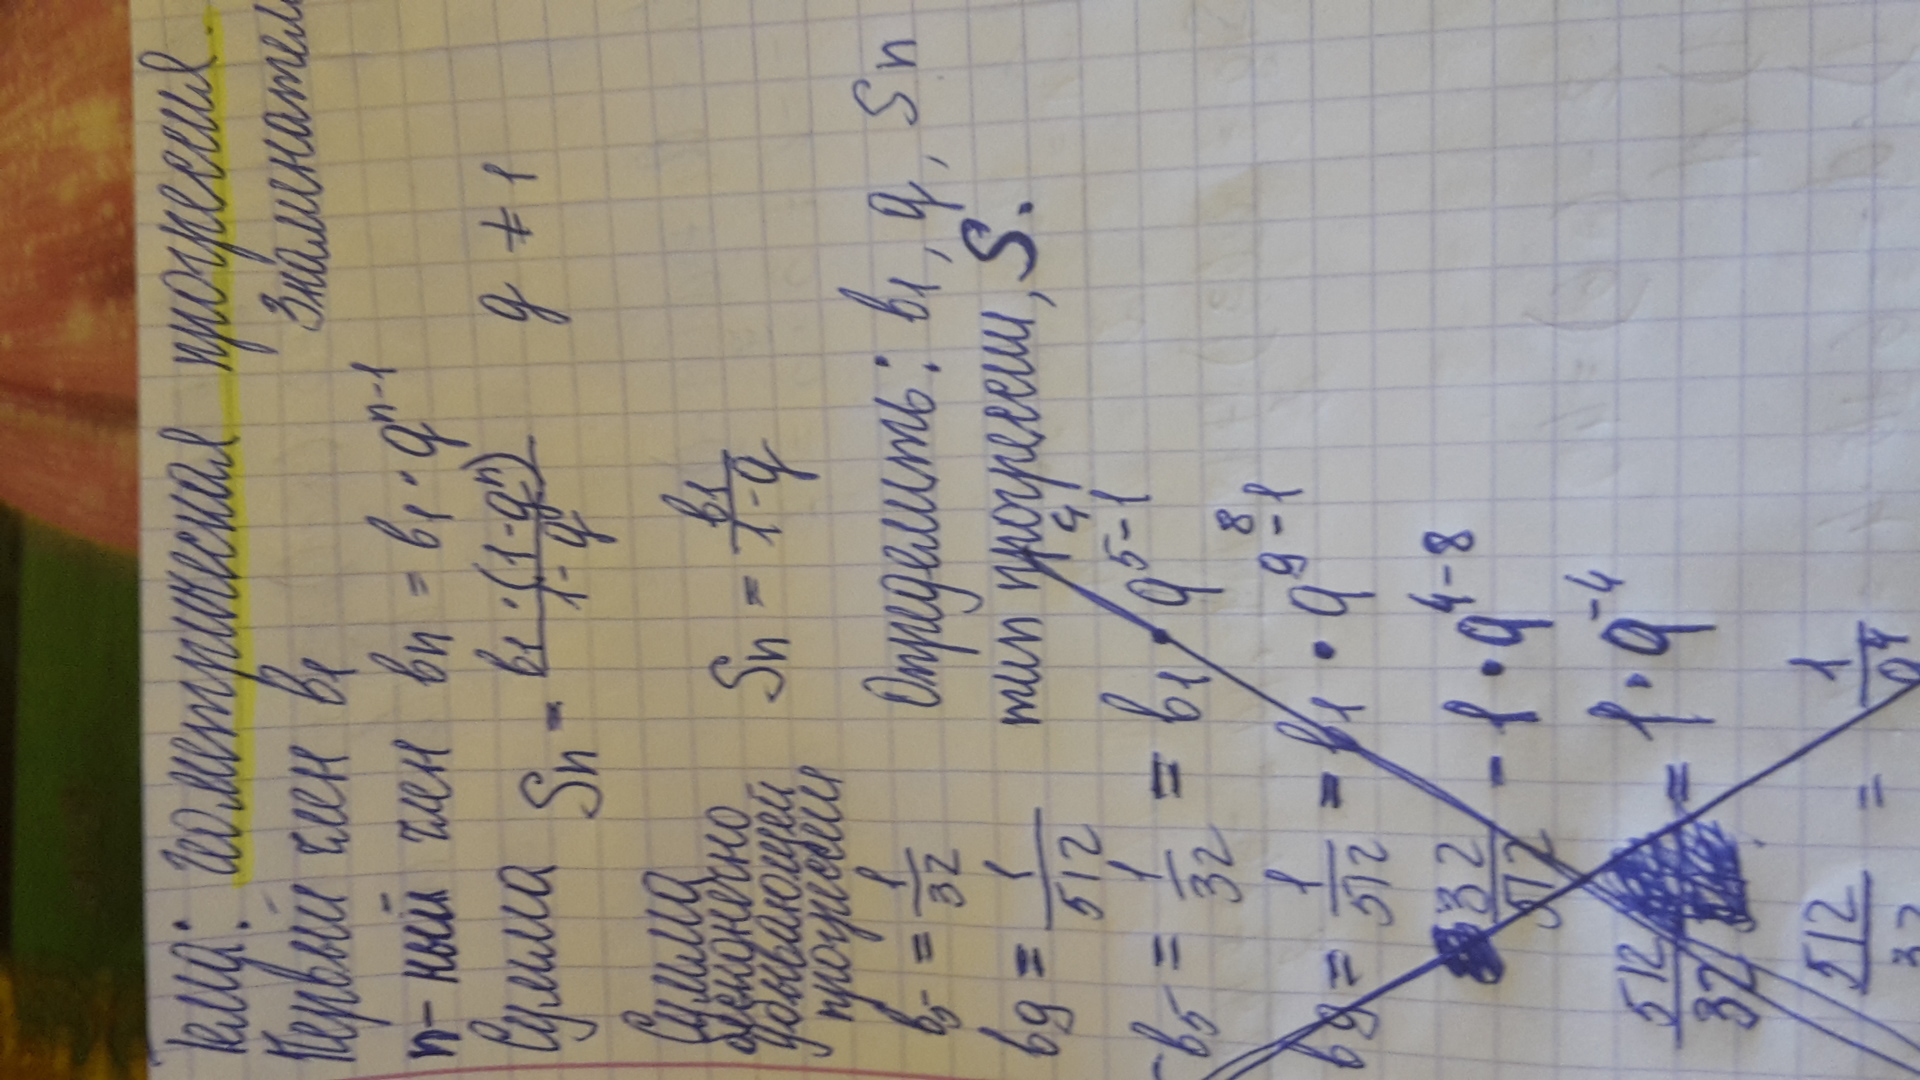 Тема: Геометрическая прогрессия.
Первый член b1 Знаменатель
n-ный член bn = b1 · q^n-1
Сумма Sn = b1 · (1-q^n) / 1-q q ≠ 1
Сумма бесконечно убывающей прогрессии Sn = b1 / 1-q
b5 = 1/32 Определить: b1, q, Sn
b9 = 1/512 тип прогрессии, S.
b5 = 1/32 = b1 · q^5-1 4
b9 = 1/512 = b1 · q^9-1 8
32/512 = 1 · q^4-8
512/32 = 1 · q^-4
512/32 = 1/q^4